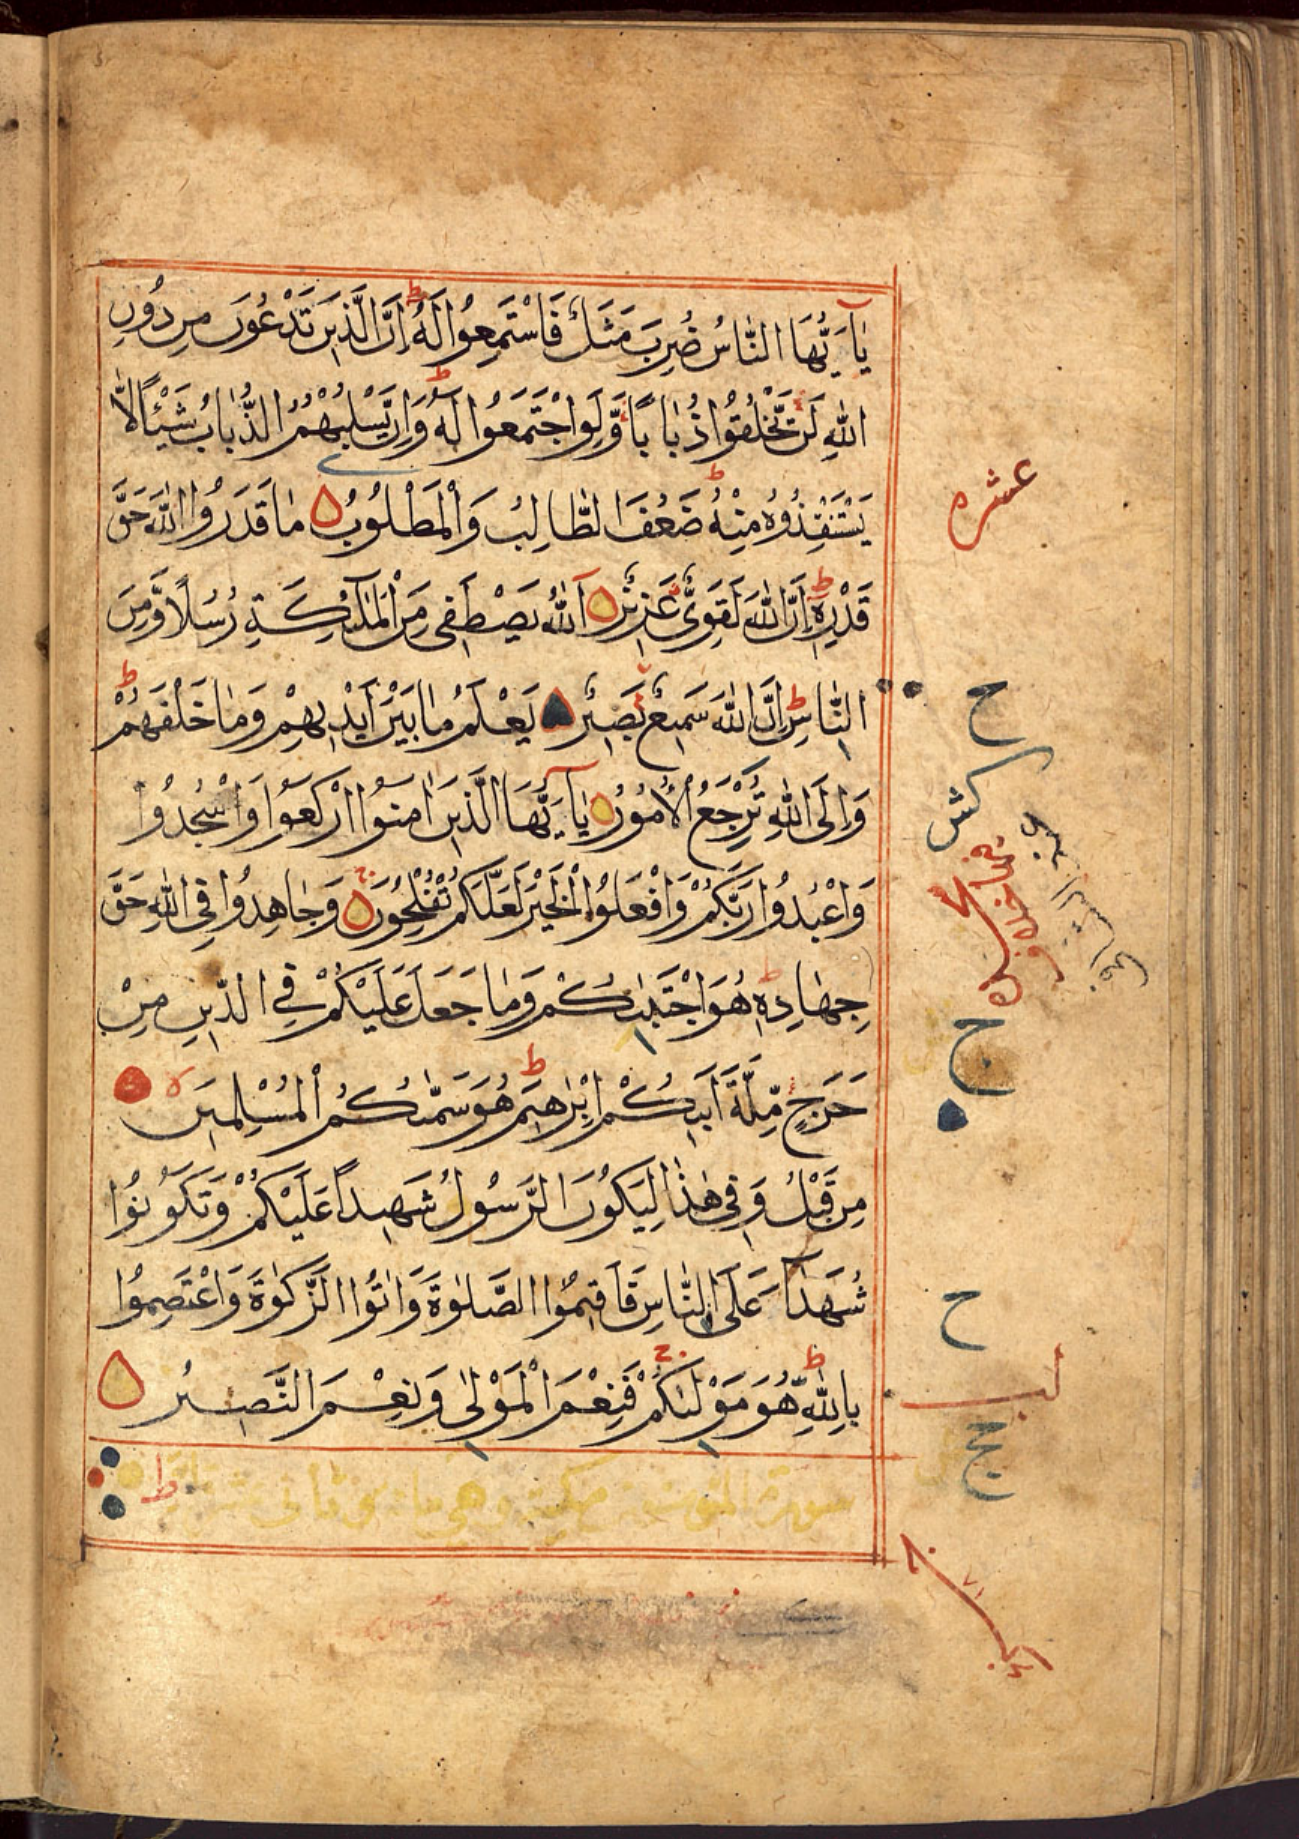 يَا أَيُّهَا النَّاسُ ضُرِبَ مَثَلٌ فَاسْتَمِعُوا لَهُ إِنَّ الَّذِينَ تَدْعُونَ مِن دُونِ
اللهِ لَن يَخْلُقُوا ذُبَابًا وَّلَوِ اجْتَمَعُوا لَهُ وَإِن يَّسْلُبْهُمُ الذُّبَابُ شَيْئًا لَّا
يَسْتَنْقِذُوهُ مِنْهُ ضَعُفَ الطَّالِبُ وَالْمَطْلُوبُ مَا قَدَرُوا اللهَ حَقَّ
قَدْرِهِ إِنَّ اللهَ لَقَوِيٌّ عَزِيزٌ اَللهُ يَصْطَفِي مِنَ الْمَلٰئِكَةِ رُسُلًا وَّمِنَ
النَّاسِ إِنَّ اللهَ سَمِيعٌ بَصِيرٌ يَعْلَمُ مَا بَيْنَ أَيْدِيهِمْ وَمَا خَلْفَهُمْ
وَإِلَى اللهِ تُرْجَعُ الْأُمُورُ يَا أَيُّهَا الَّذِينَ اٰمَنُوا ارْكَعُوا وَاسْجُدُوا
وَاعْبُدُوا رَبَّكُمْ وَافْعَلُوا الْخَيْرَ لَعَلَّكُمْ تُفْلِحُونَ وَجَاهِدُوا فِي اللهِ حَقَّ
جِهَادِهِ هُوَ اجْتَبٰىكُمْ وَمَا جَعَلَ عَلَيْكُمْ فِي الدِّينِ مِنْ
حَرَجٍ مِّلَّةَ أَبِيكُمْ إِبْرٰهِيمَ هُوَ سَمّٰىكُمُ الْمُسْلِمِينَ
مِن قَبْلُ وَفِي هٰذَا لِيَكُونَ الرَّسُولُ شَهِيدًا عَلَيْكُمْ وَتَكُونُوا
شُهَدَآءَ عَلَى النَّاسِ فَأَقِيمُوا الصَّلٰوةَ وَاٰتُوا الزَّكٰوةَ وَاعْتَصِمُوا
بِاللهِ هُوَ مَوْلٰىكُمْ فَنِعْمَ الْمَوْلٰى وَنِعْمَ النَّصِيرُ
عشره
ح
ج
ح
لب